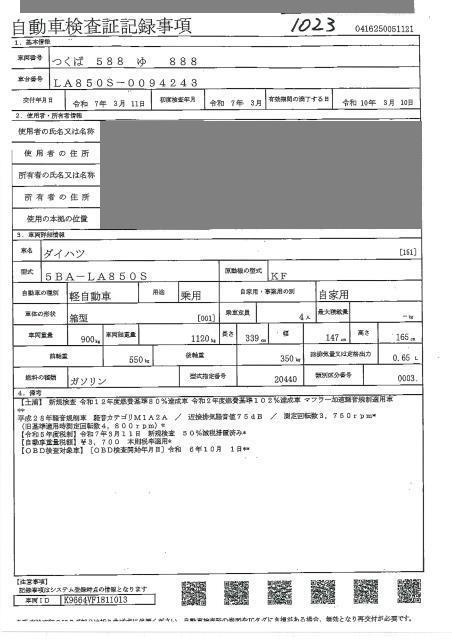 自動車検査証記録事項
1023
0416250051121
1. 基本情報
車両番号 つくば 588 ゆ 888
車台番号 LA850S-0094243
交付年月日 令和 7年 3月 11日 初度検査年月 令和 7年 3月 有効期間の満了する日 令和 10年 3月 10日
2. 使用者・所有者情報
使用者の氏名又は名称
使用者の住所
所有者の氏名又は名称
所有者の住所
使用の本拠の位置
3. 車両詳細情報
車名 ダイハツ [151]
型式 5BA-LA850S 原動機の型式 KF
自動車の種別 軽自動車 用途 乗用 自家用・事業用の別 自家用
車体の形状 箱型 [001] 乗車定員 4人 最大積載量 -kg
車両重量 900kg 車両総重量 1120kg 長さ 339cm 幅 147cm 高さ 165cm
前軸重 550kg 後軸重 350kg 総排気量又は定格出力 0.65 L
燃料の種類 ガソリン 型式指定番号 20440 類別区分番号 0003
4. 備考
新規検査 令和12年度燃費基準80%達成車 令和2年度燃費基準102%達成車 マフラー加速騒音規制適用車
**
平成28年騒音規制車 騒音カテゴリM1A2A / 近接排気騒音値75dB / 測定回転数3,750rpm*
(旧基準適用時測定回転数4,800rpm)*
【令和5年度税制】令和7年3月11日 新規検査 50%減税措置済み*
【自動車重量税額】¥3,700 本則税率適用*
【OBD検査対象車】[OBD検査開始年月日] 令和 6年10月 1日**
【注意事項】
記録事項はシステム登録時点の情報となります
車両ID K9664VF181I013